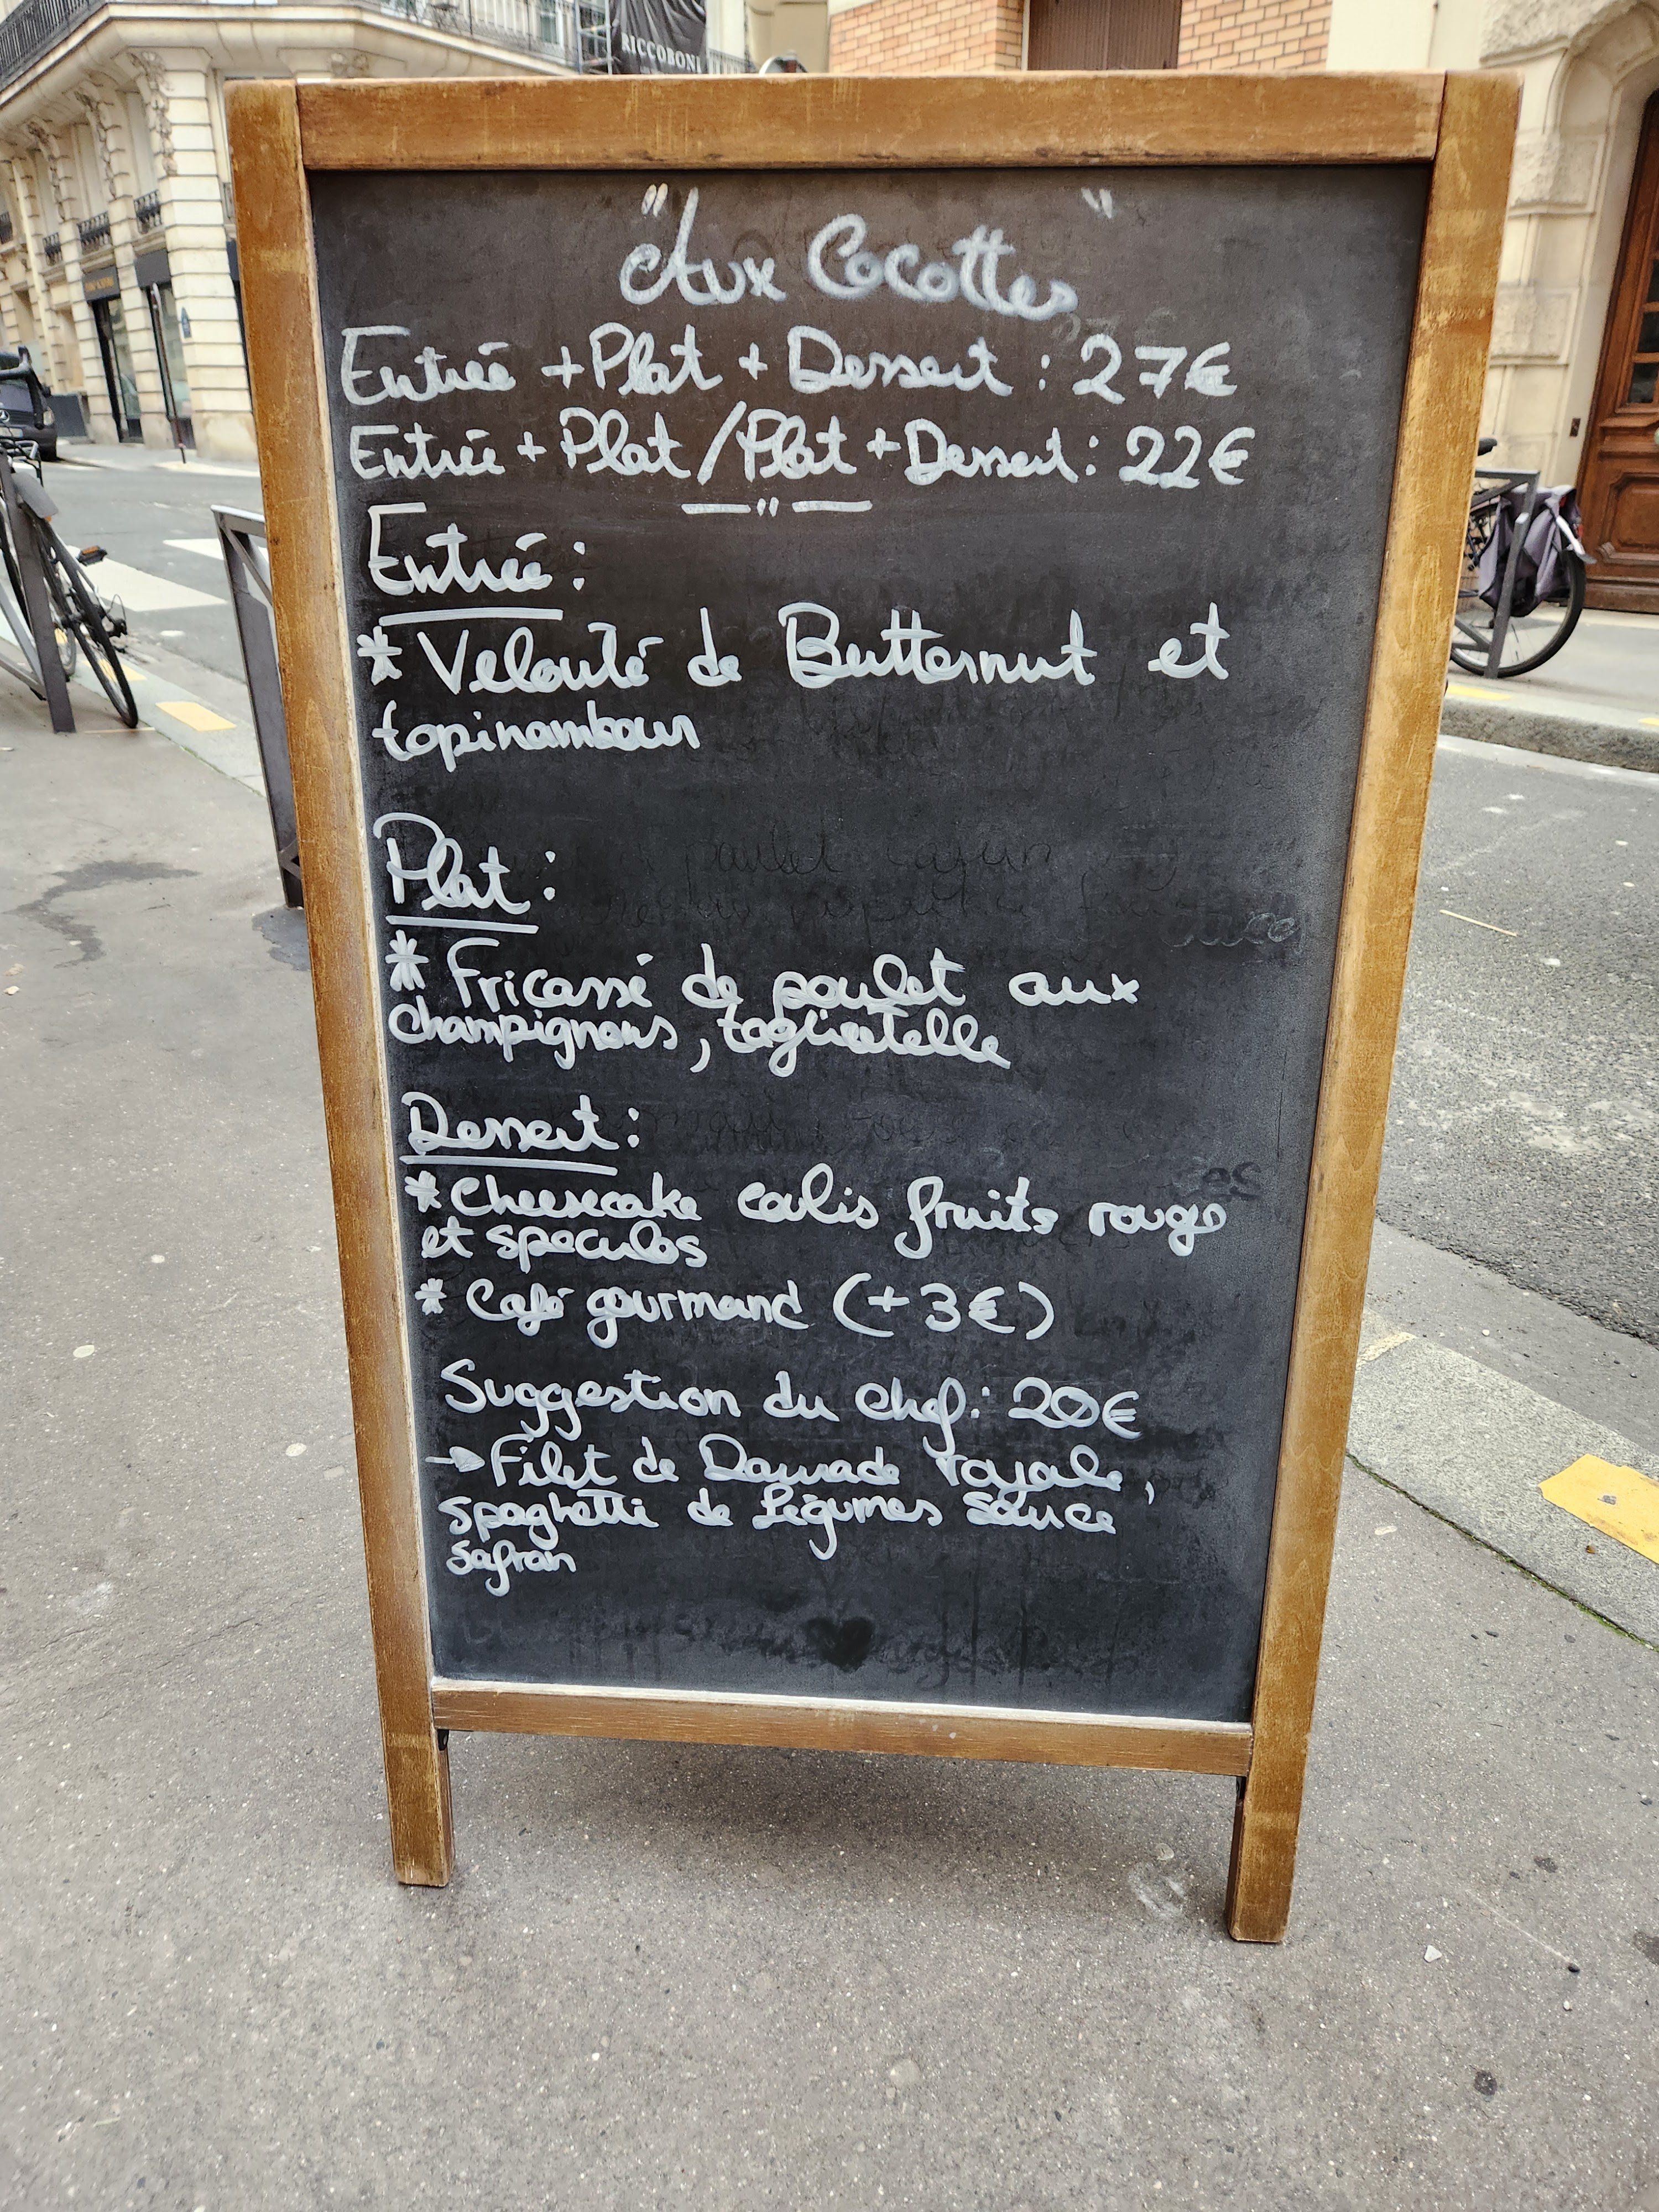 RICCOBONI
"Aux Cocottes"
Entrée + Plat + Dessert : 27€
Entrée + Plat / Plat + Dessert : 22€
Entrée :
* Velouté de Butternut et
topinambour
Plat :
* Fricassé de poulet aux
champignons, tagliatelle
Dessert :
* Cheesecake coulis fruits rouge
et speculos
* Café gourmand (+3€)
Suggestion du chef : 20€
→ Filet de Daurade royale,
spaghetti de légumes sauce
safran